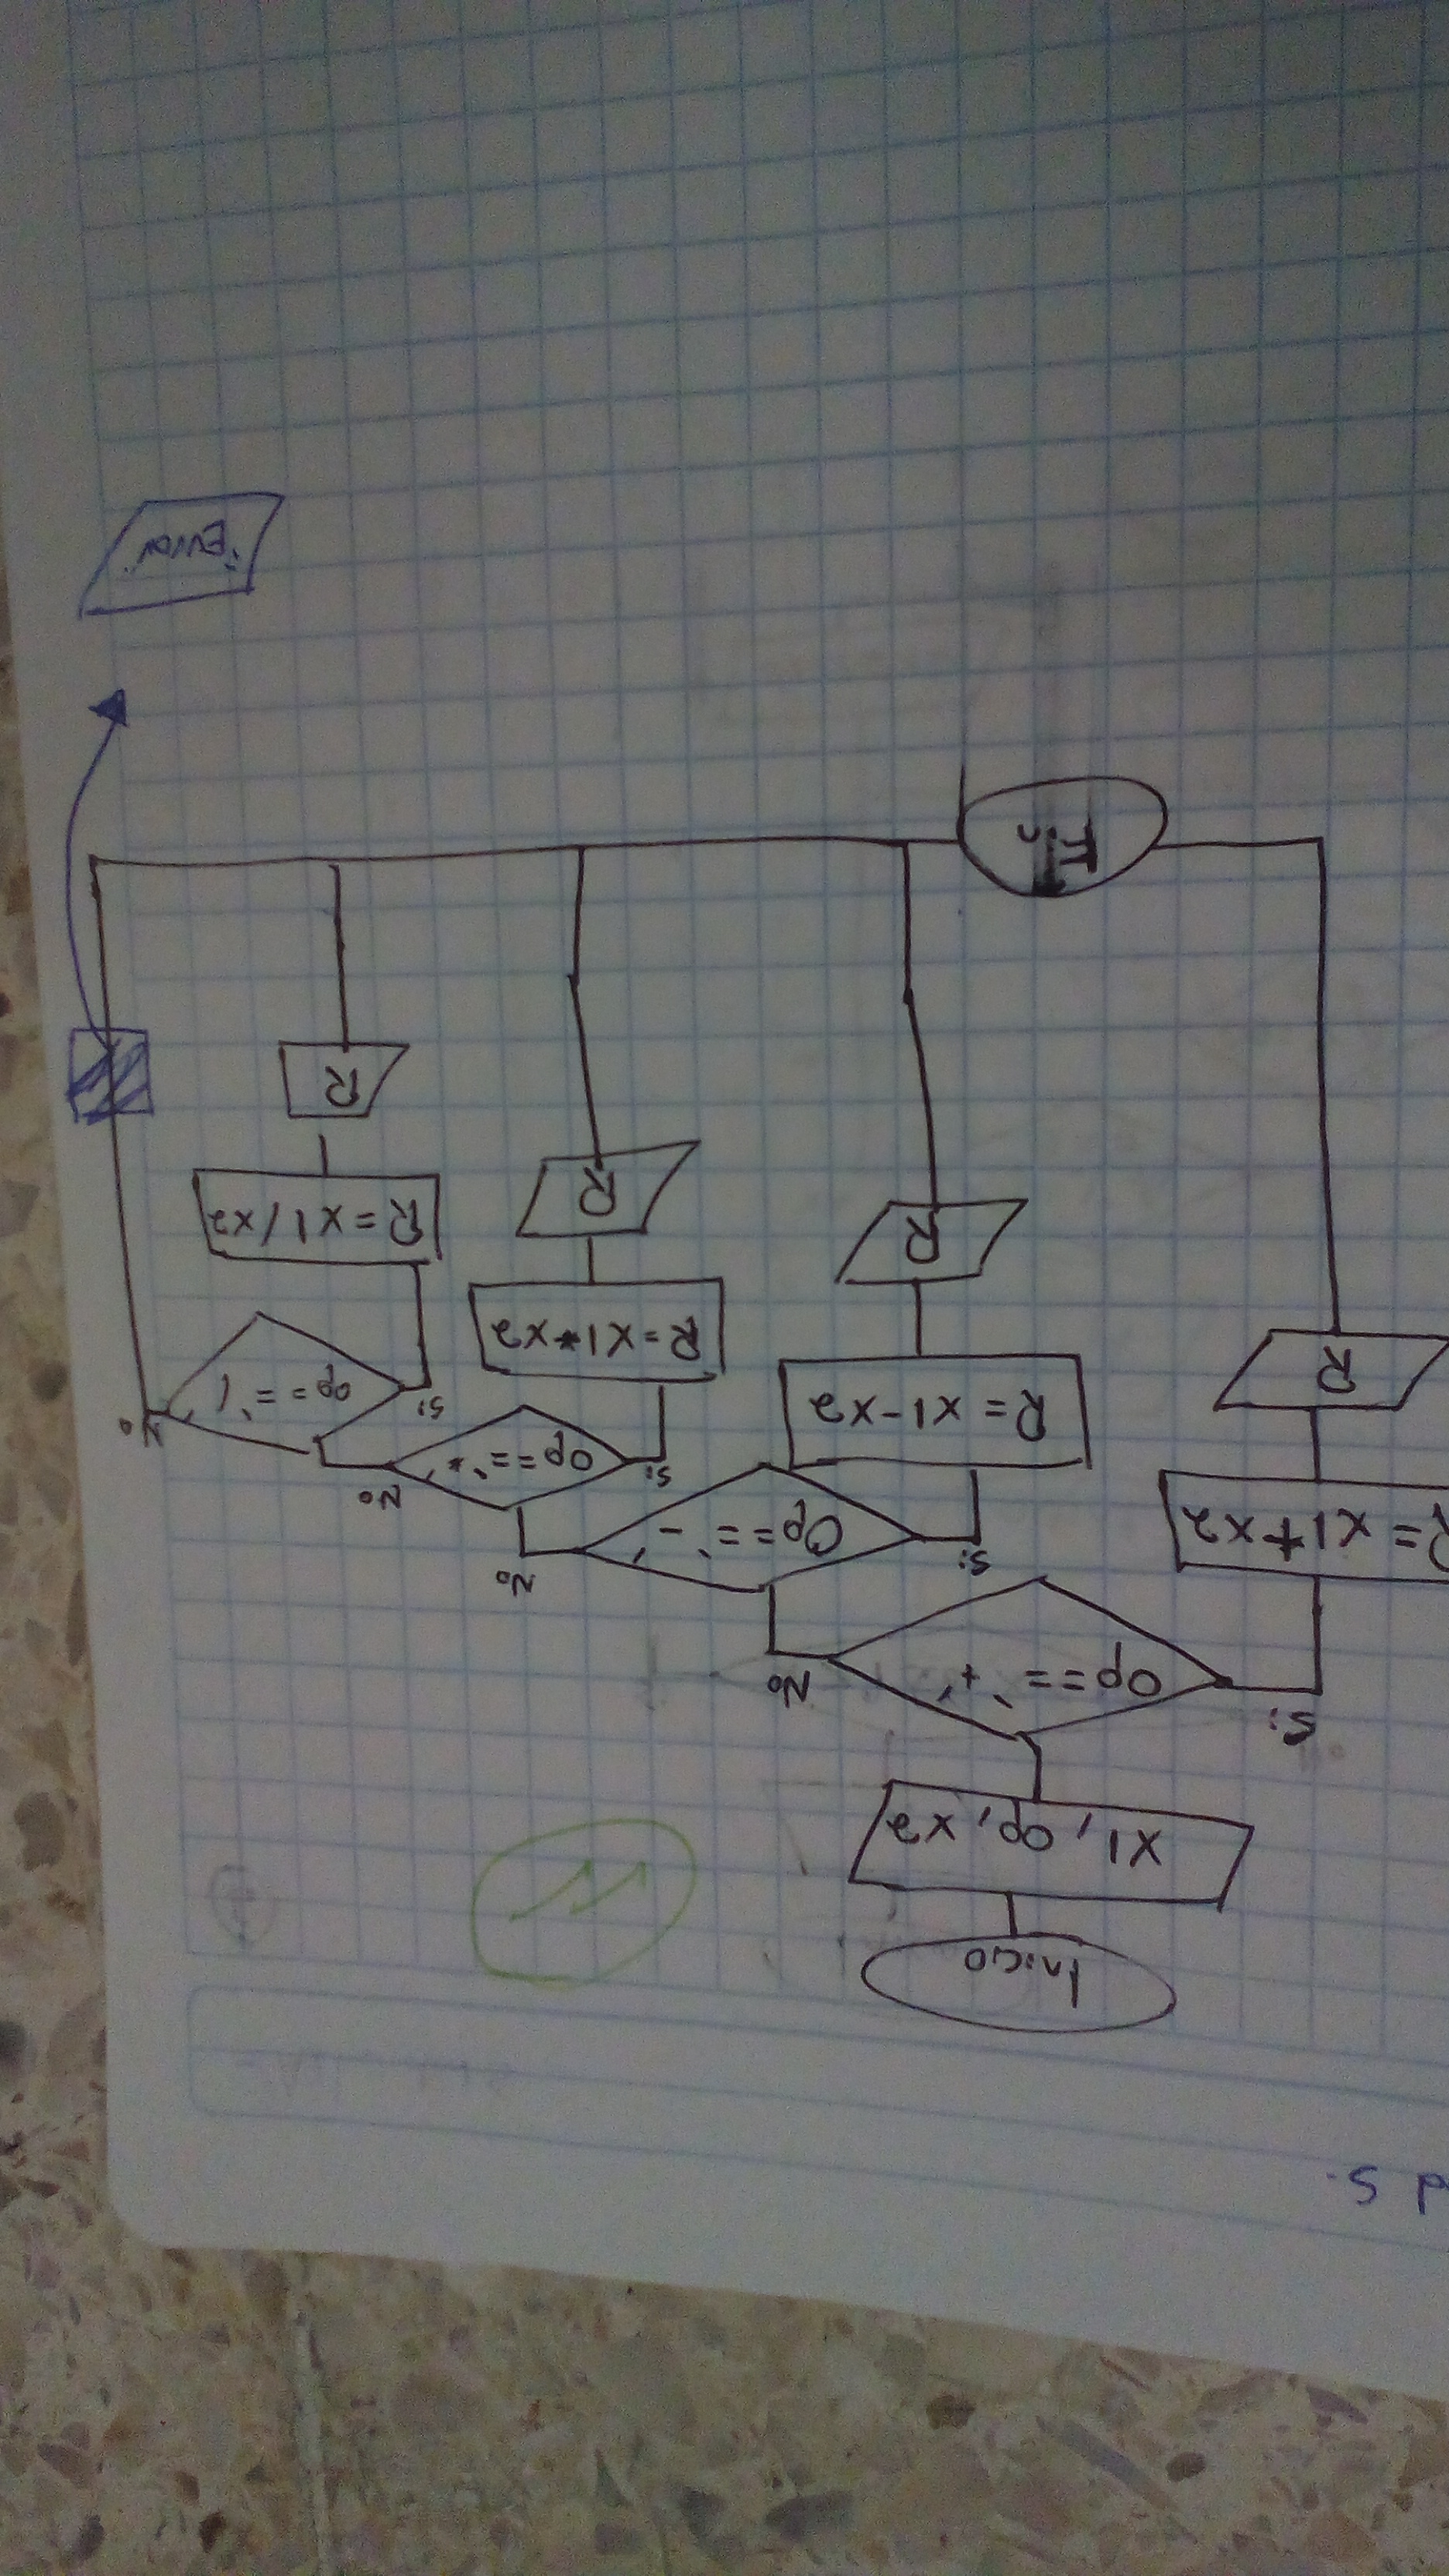 d s.
Inicio
X1, Op, X2
Op == '+'
Si
No
R = X1 + X2
R
Op == '-'
Si
No
R = X1 - X2
R
Op == '*'
Si
No
R = X1 * X2
R
Op == '/'
Si
No
R = X1 / X2
R
Fin
¡Error!